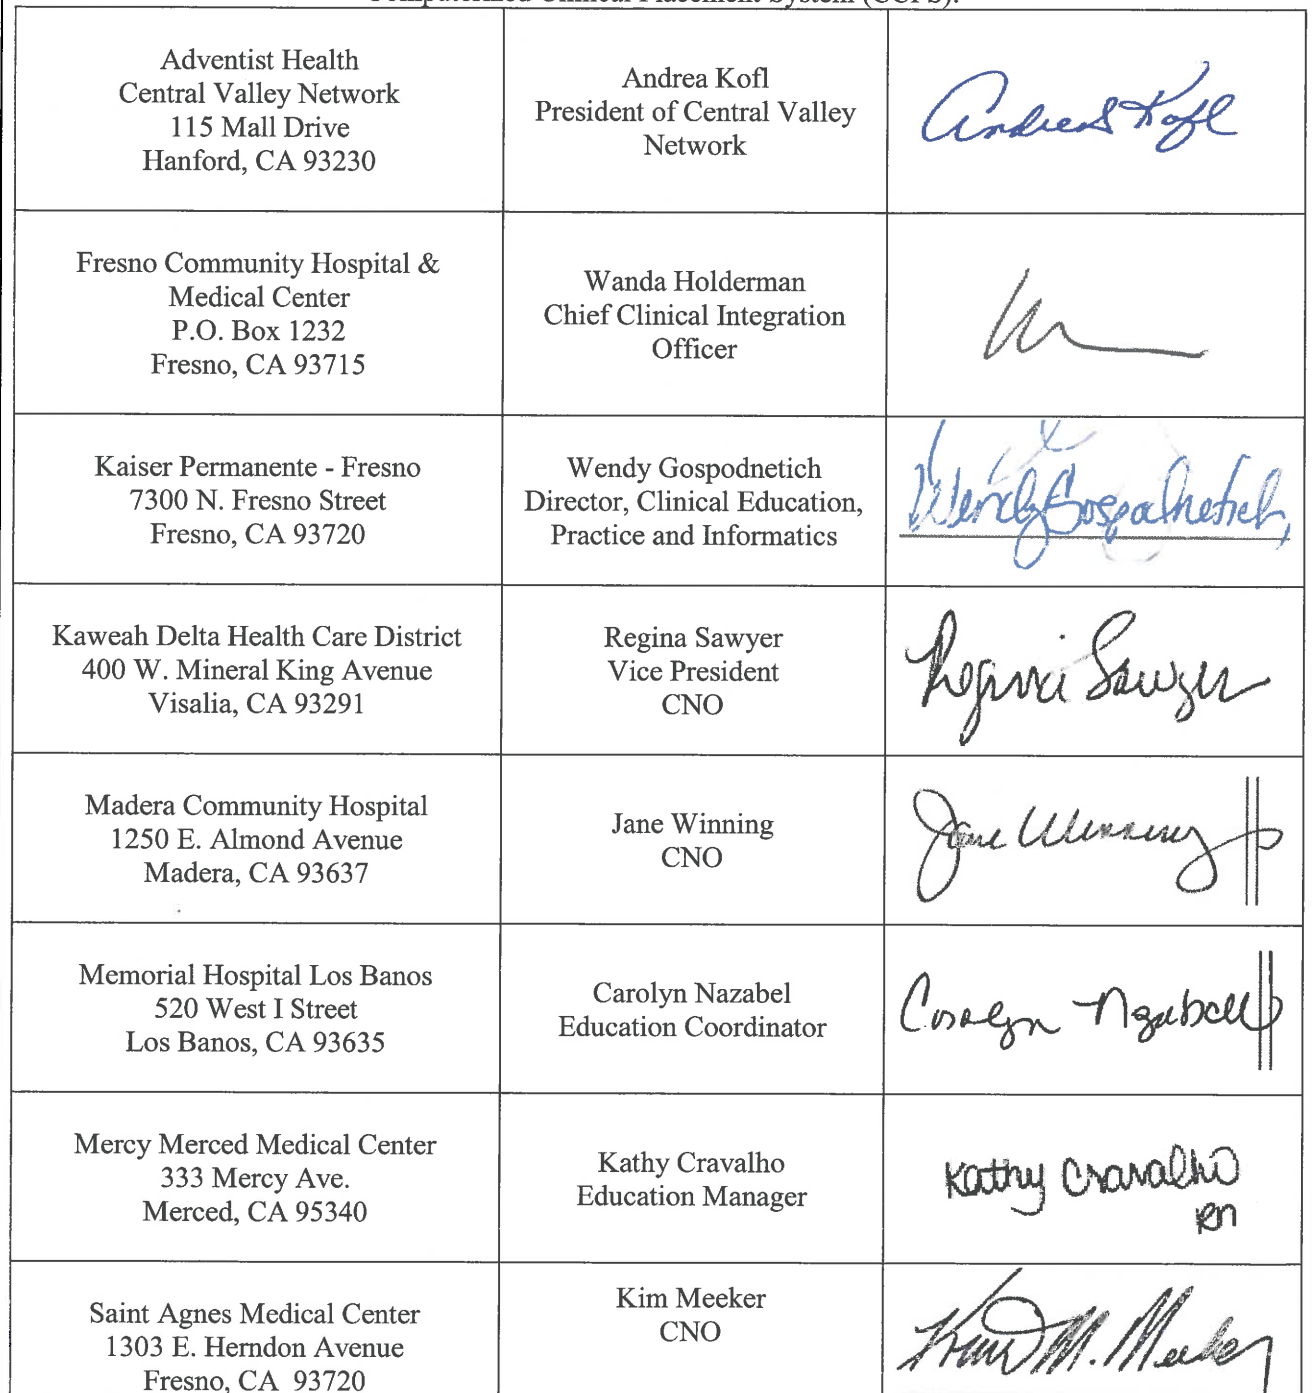 Computerized Clinical Placement System (CCPS).
Adventist Health
Central Valley Network
115 Mall Drive
Hanford, CA 93230
Andrea Kofl
President of Central Valley
Network
Andrea Kofl
Fresno Community Hospital &
Medical Center
P.O. Box 1232
Fresno, CA 93715
Wanda Holderman
Chief Clinical Integration
Officer
Kaiser Permanente - Fresno
7300 N. Fresno Street
Fresno, CA 93720
Wendy Gospodnetich
Director, Clinical Education,
Practice and Informatics
Wendy Gospodnetich
Kaweah Delta Health Care District
400 W. Mineral King Avenue
Visalia, CA 93291
Regina Sawyer
Vice President
CNO
Regina Sawyer
Madera Community Hospital
1250 E. Almond Avenue
Madera, CA 93637
Jane Winning
CNO
Jane Winning
Memorial Hospital Los Banos
520 West I Street
Los Banos, CA 93635
Carolyn Nazabel
Education Coordinator
Carolyn Nazabel
Mercy Merced Medical Center
333 Mercy Ave.
Merced, CA 95340
Kathy Cravalho
Education Manager
Kathy Cravalho
RN
Saint Agnes Medical Center
1303 E. Herndon Avenue
Fresno, CA 93720
Kim Meeker
CNO
Kim M. Meeker